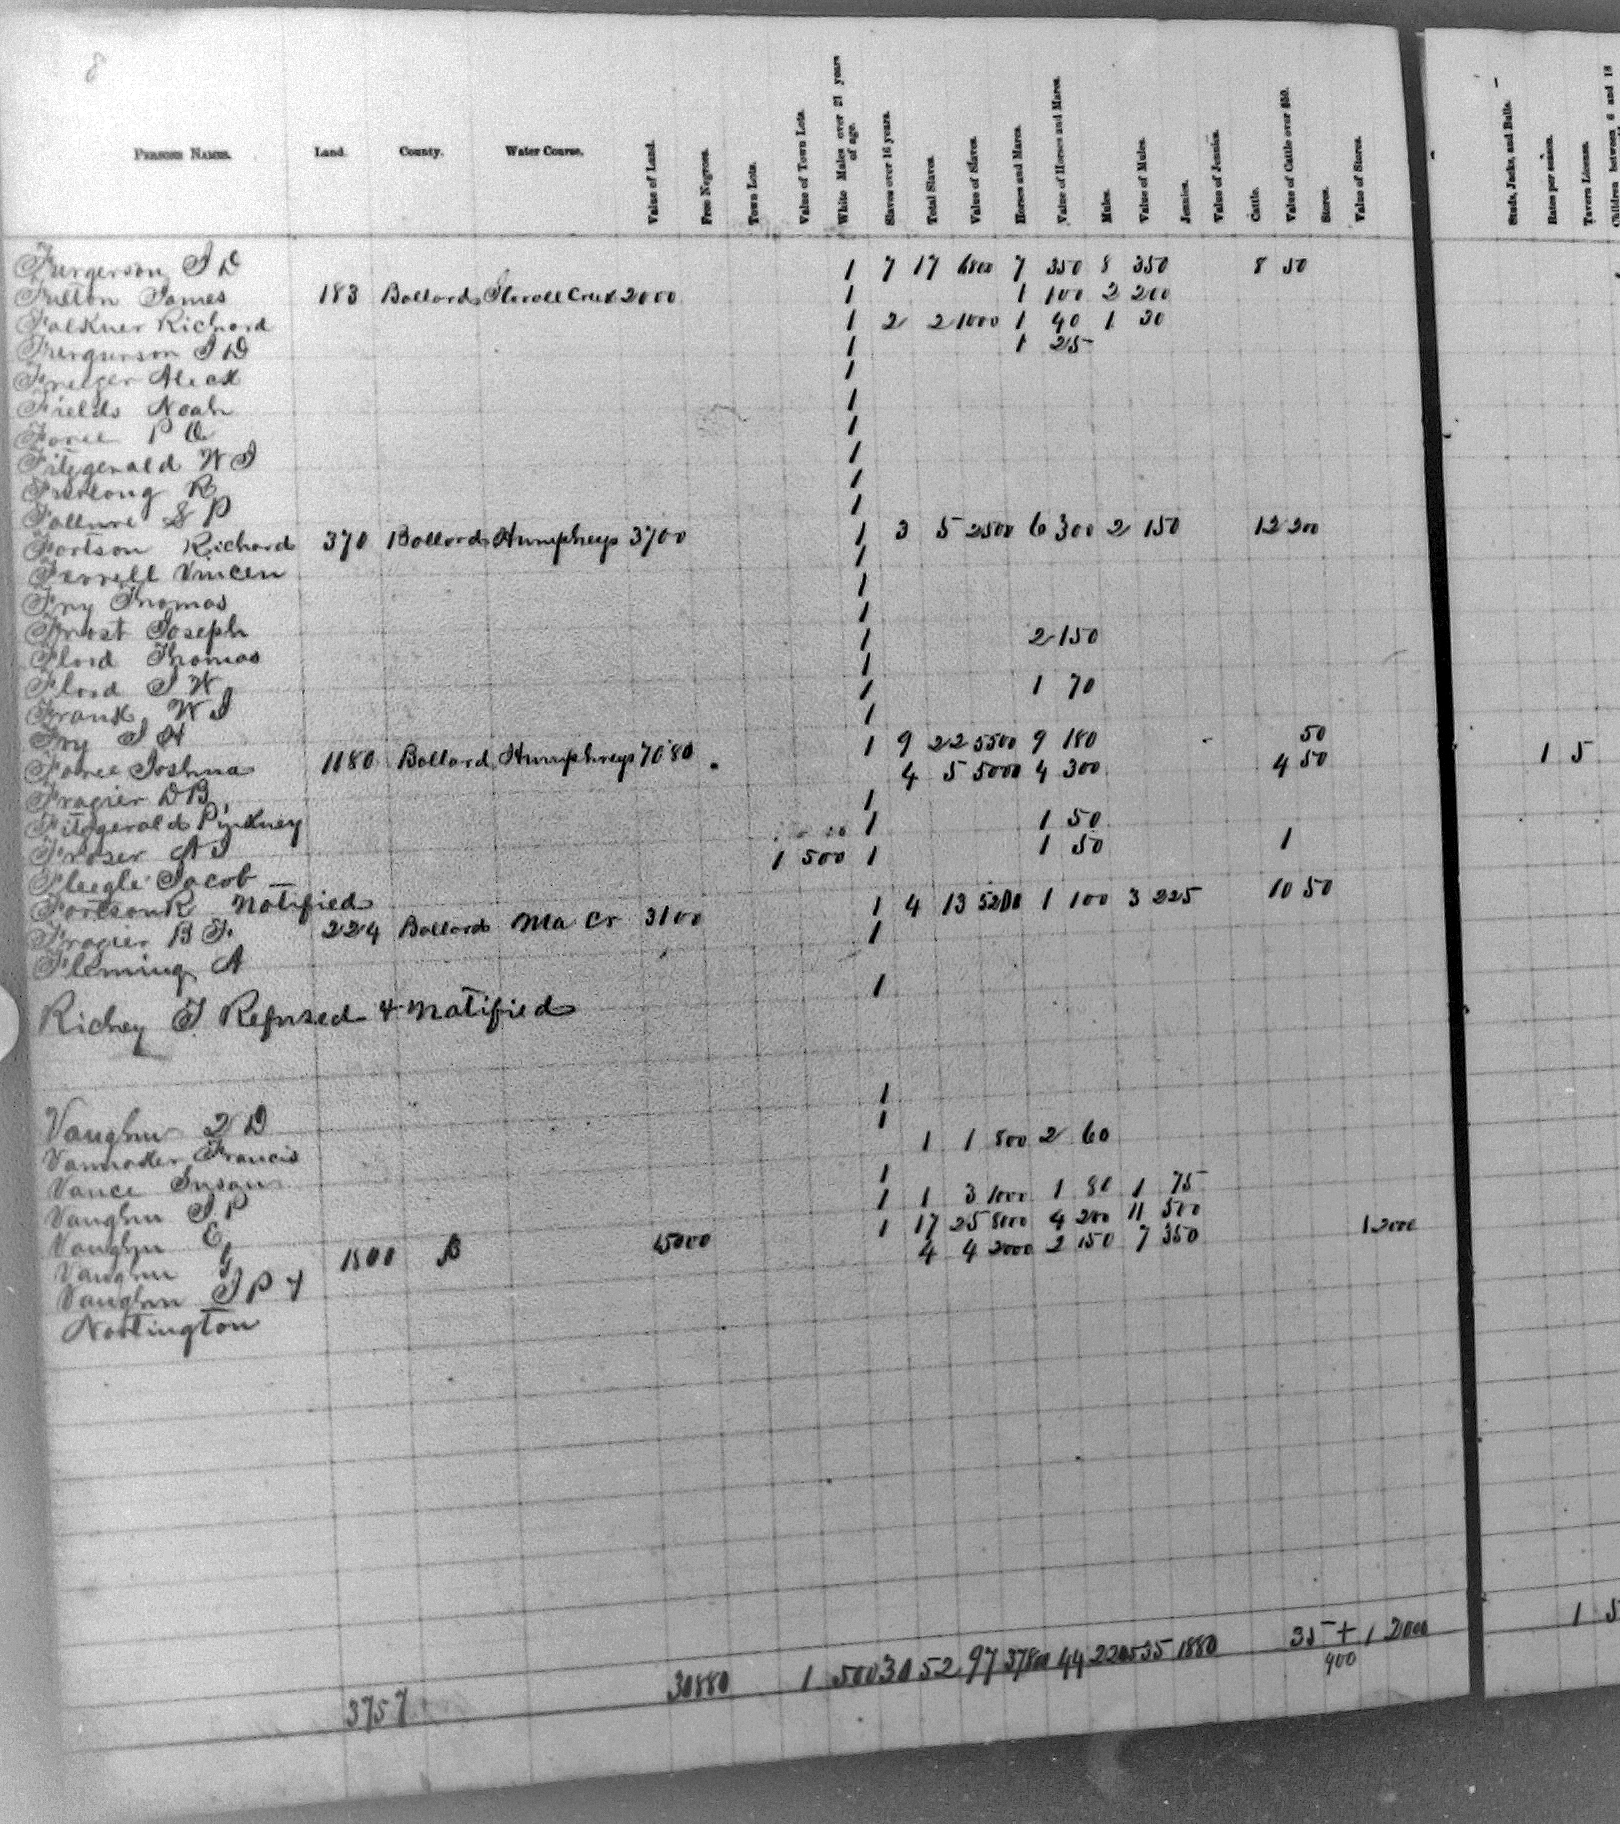 8
Persons Names. Land. County. Water Course. Value of Land. Free Negroes. Town Lots. Value of Town Lots. White Males over 21 years of age. Slaves over 16 years. Total Slaves. Value of Slaves. Horses and Mares. Value of Horses and Mares. Mules. Value of Mules. Jennies. Value of Jennies. Cattle. Value of Cattle over $50. Stores. Value of Stores. Studs, Jacks, and Bulls. Rates per season. Tavern License. Children between 6 and 18
Furgerson J D 1 7 17 6800 7 350 8 350 8 50
Fulton James 183 Ballard Creek 2000 1 1 100 2 200
Falkner Richard 1 2 2 1000 1 40 1 30
Furgurson J D 1 1 25
Alick 1
Fields Noah 1
Force P 1
Fitzgerald W J 1
Furlong R 1
S P 1
Fortson Richard 370 Ballard Humphreys 3700 1 3 5 2500 6 300 2 150 12 200
Ferrell Vincen 1
Fry Thomas 1
Frost Joseph 1
Floid Thomas 1 2 150
Floid J W 1
Frank W J 1 1 70
Fry J H 1
Force Joshua 1180 Ballard Humphreys 7080 1 9 22 5500 9 180 50
Frazier D B 4 5 5000 4 300 4 50 1 5
Fitzgerald Pinkney 1
Frazer A J 1 1 50
Fleegle Jacob 1 500 1 1 50 1
Fortson R Notified
Frazier B F 224 Ballard Ma Cr 3100 1 4 13 5200 1 100 3 225 10 50
Fleming A 1
Richey T Refused & Notified 1
Vaughn D 1
Francis 1
Vance Susan 1 1 500 2 60
Vaughn J P 1
Vaughn E 1 1 3 1000 1 80 1 75
Vaughn G 1800 B 15000 1 17 25 8000 4 200 11 500
Vaughn J P & 4 4 2000 2 150 7 350 1 2000
Nortington
3757 30880 1 500 30 52 97 37800 44 2205 35 1880 35 + 1 2000 1 5
900